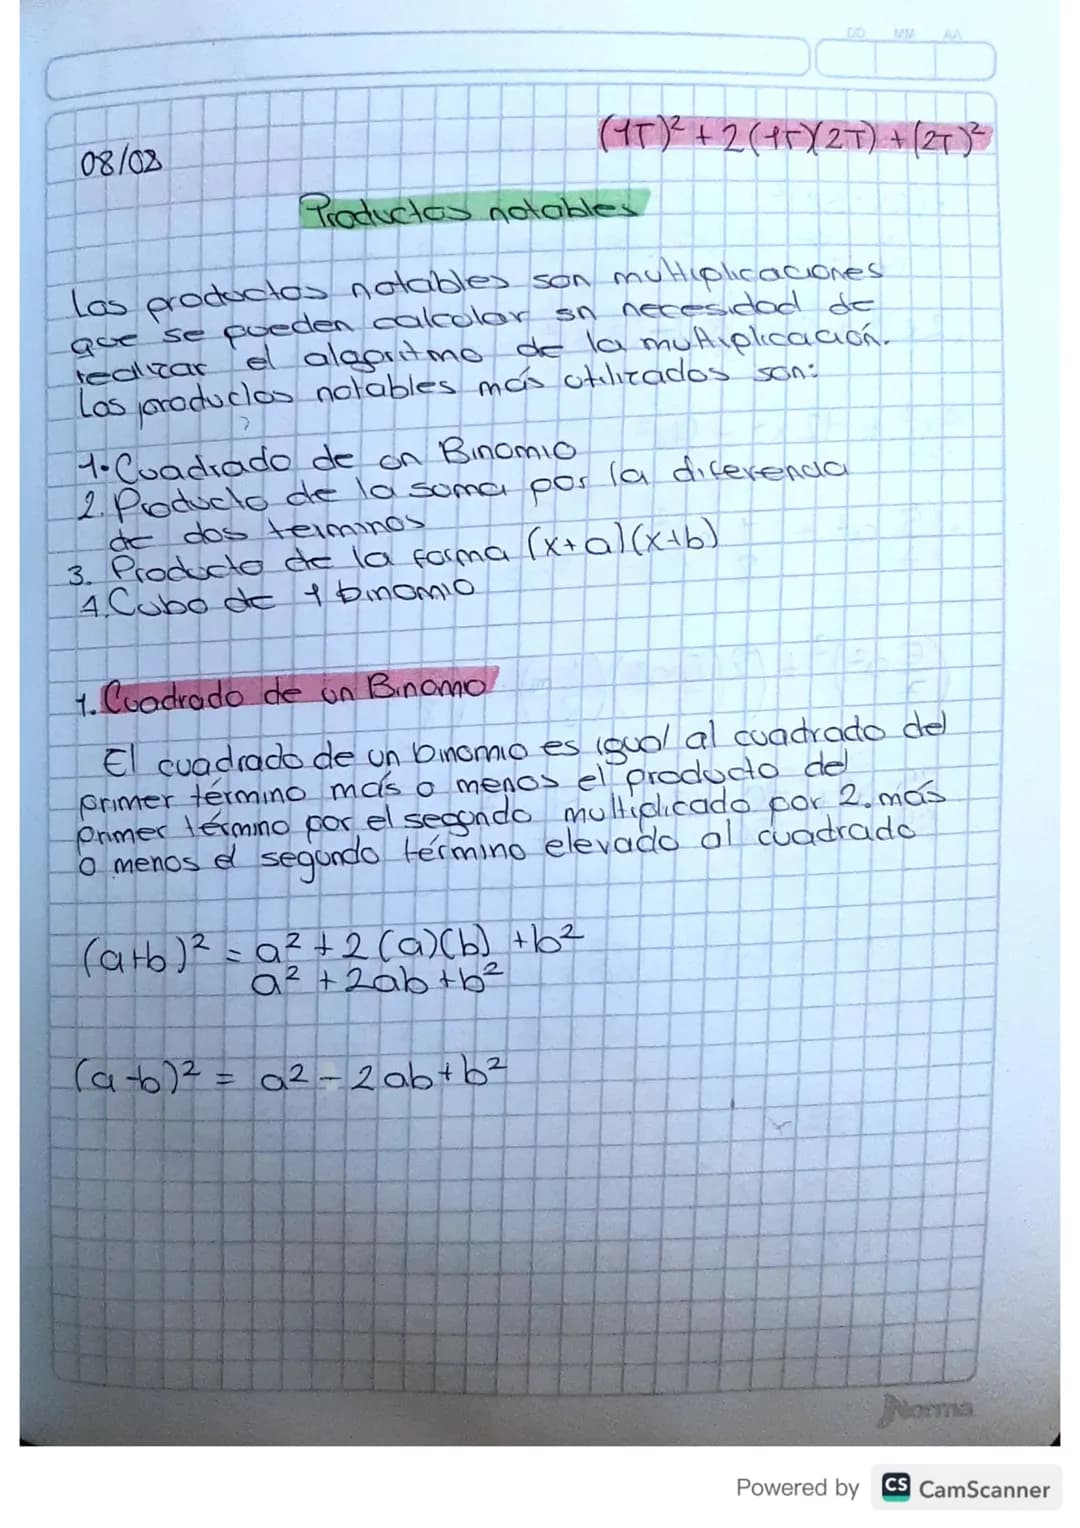 DD MM AA
(1T)² + 2(1T)(2T) + (2T)²
08/03
Productos notables
Los productos notables son multiplicaciones
que se pueden calcular sn necesidad de
realizar el algoritmo de la multiplicación.
Los productos notables más utilizados son:
1. Cuadrado de un Binomio
2. Producto de la soma por la diferencia
de dos terminos
3. Producto de la forma (x+a)(x+b)
4. Cubo de 1 binomio
1. Cuadrado de un Binomio
El cuadrado de un binomio es igual al cuadrado del
primer término más o menos el producto del
primer término por el segundo multiplicado por 2. más
o menos el segundo término elevado al cuadrado
(a+b)² = a² + 2(a)(b) + b²
a² + 2ab + b²
(a-b)² = a² - 2ab + b²
Norma
Powered by CS CamScanner